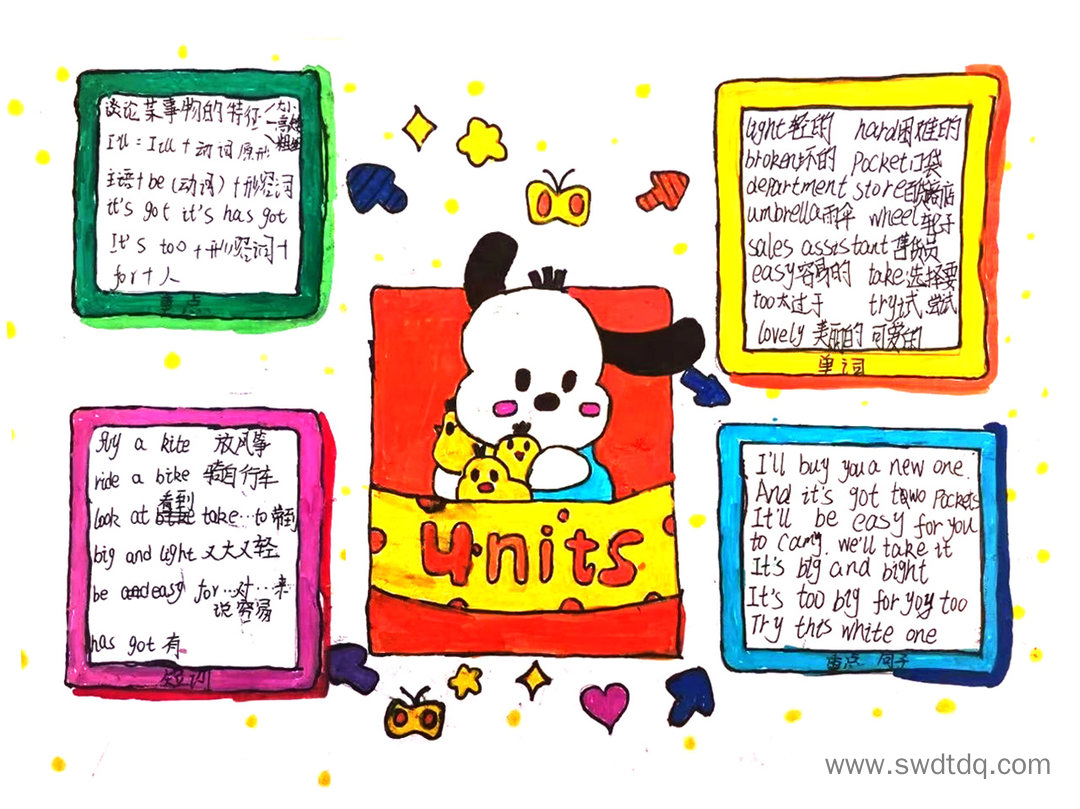 谈论某事物的特征
大小
高矮
粗细
I'll = I'll + 动词原形
主语+be(动词)+形容词
it's got it's has got
It's too + 形容词 +
for + 人
重点
light 轻的 hard 困难的
broken 坏的 Pocket 口袋
department store 百货商店
umbrella 雨伞 wheel 轮子
sales assistant 售货员
easy 容易的 take 选择要
too 太过于 try 试.尝试
lovely 美丽的 可爱的
单词
units
fly a kite 放风筝
ride a bike 骑自行车
look at 看到 take…to 带到
big and light 又大又轻
be easy for…对…来
说容易
has got 有
短词
I'll buy you a new one.
And it's got two Pockets
It'll be easy for you
to carry. we'll take it
It's big and bight
It's too big for you too
Try this white one
重点 句子
www.swdtdq.com